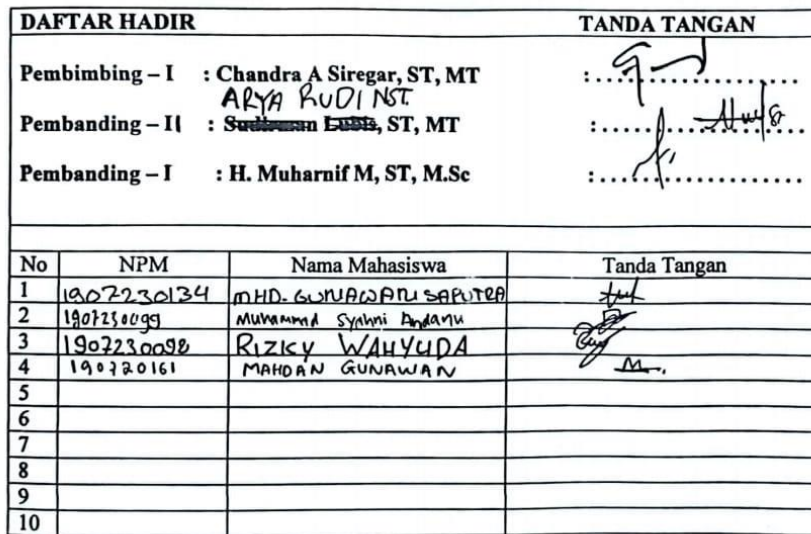 DAFTAR HADIR TANDA TANGAN
Pembimbing – I : Chandra A Siregar, ST, MT :....................
ARYA RUDI NST.
Pembanding – II : Sudirman Lubis, ST, MT :....................
Pembanding – I : H. Muharnif M, ST, M.Sc :....................
No NPM Nama Mahasiswa Tanda Tangan
1 1907230134 MHD. GUNAWAN SAPUTRA
2 1907230099 Muhammad Syahni Andanu
3 1907230098 RIZKY WAHYUDA
4 190720161 MAHDAN GUNAWAN
5
6
7
8
9
10